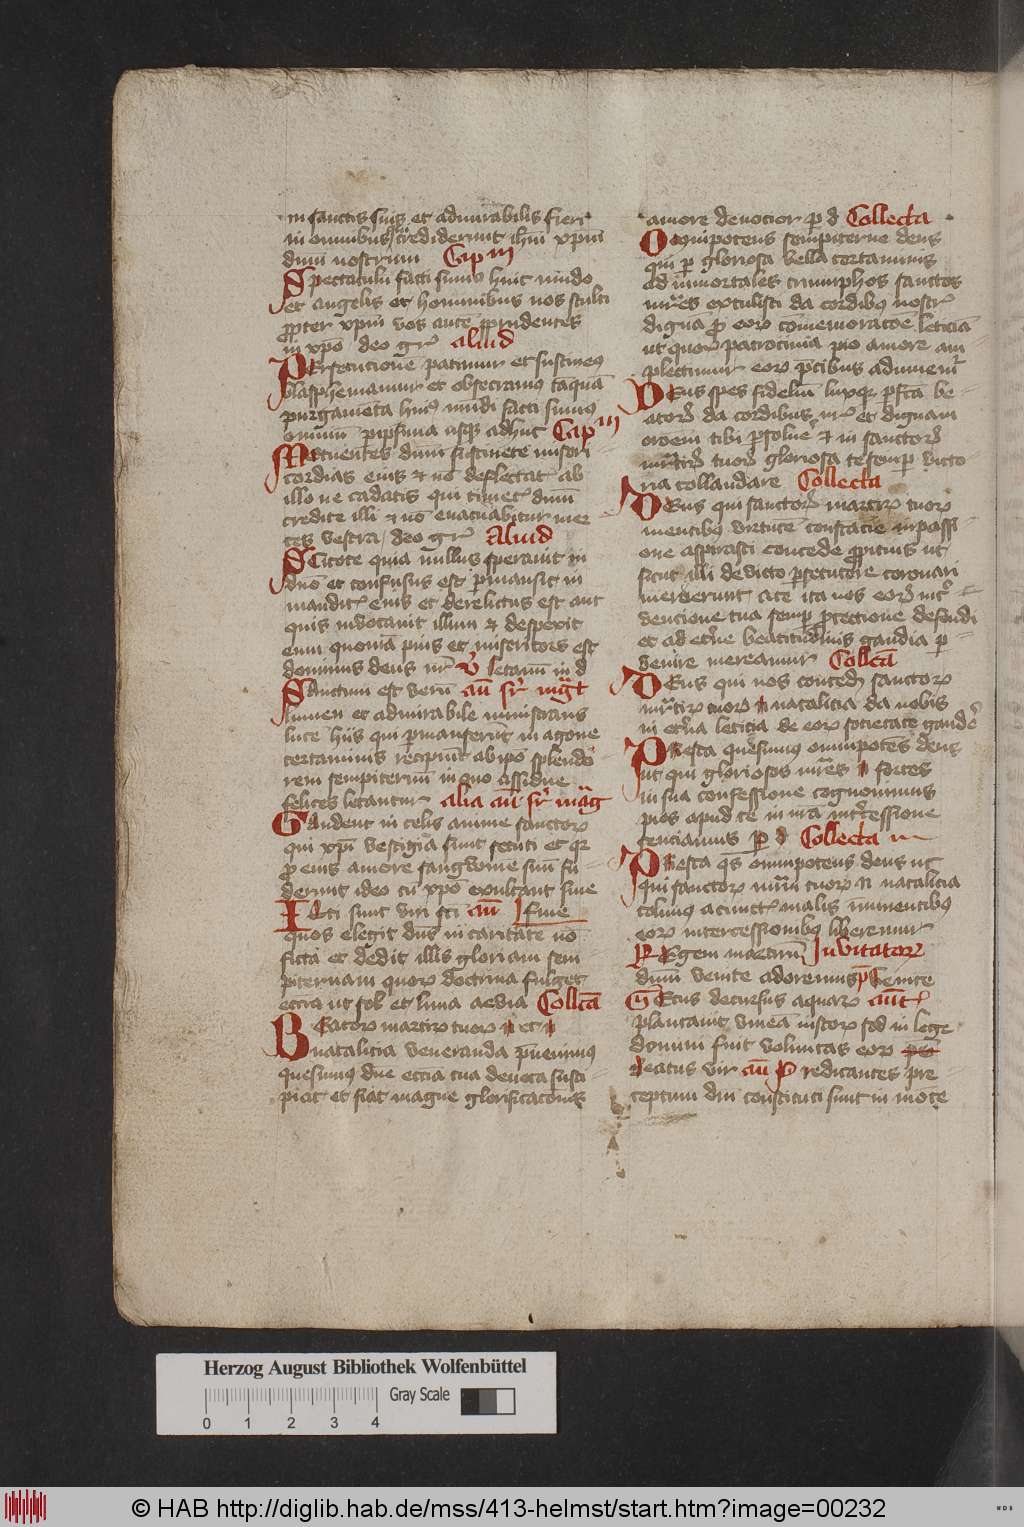 in sanctis suis et admirabilis fieri
in omnibus q̄ crediderunt ihm̄ xp̄m
dnm̄ nostrum Capm
Spectaculū facti sumus huic mūdo
et angelis et hominibus nos stulti
ꝓpter xp̄m vos autē prudentes
in xp̄o deo gr̄ aliud
Persecutionē patimur et sustinemꝰ
blasphemamur et obsecramꝰ taquā
purgamēta huiꝰ mūdi facti sumus
omniū pipsima usqꝫ adhuc Capm
Metuentes dnm̄ sustinete miseri
cordias eius et nō deflectatꝭ ab
illo ne cadatis qui timetꝭ dnm̄
credite illi et nō evacuabitur mer
ces vestra deo gr̄ Aliud
Scitote quia nullus speravit in
dn̄o et confusus est permansit in
mandatꝭ eius et derelictus est aut
quis invocavit illum et despexit
eum quoniā pius et misericors est
dominus deus nr̄ v̄ letam̄ in d
Sanctum est verū an̄ sr̄ mḡt
lumen et admirabile ministrans
luce hiis qui permanserūt in agone
certaminis recipiūt ab ip̄o splendo
rem sempiternū in quo assidue
felices letantur alia an̄ sr̄ mag
Gaudent in celis anime sanctorꝫ
qui xp̄i vestigia sunt secuti et qꝛ
ꝓ eius amore sangwinē suū fu
derunt ideo cū xp̄o exultant sine
Isti sunt viri scī an̄ fine
quos elegit dn̄s in caritate nō
ficta et dedit illis gloriam sem
piternam quorꝫ doctrina fulget
ecc̄ia ut sol et luna aevia Collc̄a
Beatorꝫ martirꝫ tuorꝫ N et N
natalicia veneranda p̄venimꝰ
quesumꝰ dn̄e ecc̄ia tua devota susci
piat et fiat magne glorificac̄onis
amore devocior p d Collecta
Omnipotens sempiterne deus
qui p gloriosa bella certaminis
ad inmortales triumphos sanctos
mr̄es extulisti da cordibꝰ nostrꝭ
dignā ꝓ eorꝫ cōmemorac̄oe leticiā
ut quorꝫ patrocinia pio amore am
plectimur eorꝫ p̄cibus adiuvemr̄
Deus spes fideliū luxqꝫ pfc̄a be
atorꝫ da cordibus nr̄ et dignam
oroem tibi psolvē et in sanctorꝫ
mr̄tirꝫ tuorꝫ gloriosa te semp victo
ria collaudare Collecta
Deus qui sanctorꝫ martirꝫ tuorꝫ
mentibꝰ virtutē constācie in passi
one aspirasti concede ꝓpicius ut
sicut illi devicto p̄secutore coronari
meruerunt a te ita nos eorꝫ int̄
vencione tua semp ꝓtectione defendi
et ad et̄ne beatitudinis gaudia p
venire mereamur Collc̄a
Deus qui nos concedis sanctorꝫ
mr̄tirꝫ tuorꝫ N natalicia da nobis
in et̄na leticia de eorꝫ societate gaudē
Presta quesumus omnipotēs deus
ut qui gloriosos mr̄es N fortes
in sua confessione cognovimus
pios apud te in nr̄a int̄cessione
senciamus p d Collecta
Presta qs̄ omnipotens deus ut
qui sanctorꝫ mr̄m tuorꝫ N natalicia
colimus a cunctꝭ malis iminentibꝰ
eorꝫ intercessionibꝰ liberemur
Regem martirū Invitatorꝫ
dnm̄ venite adoremus ps̄ Venite
Secus decursus aquarꝫ ant̄
plantavit vineā iustorꝫ sed in lege
domini fuit voluntas eorꝫ ps̄
Beatus vir an̄ Predicantes pre
ceptum dn̄i constituti sunt in mōte
Herzog August Bibliothek Wolfenbüttel
Gray Scale
0 1 2 3 4
© HAB http://diglib.hab.de/mss/413-helmst/start.htm?image=00232